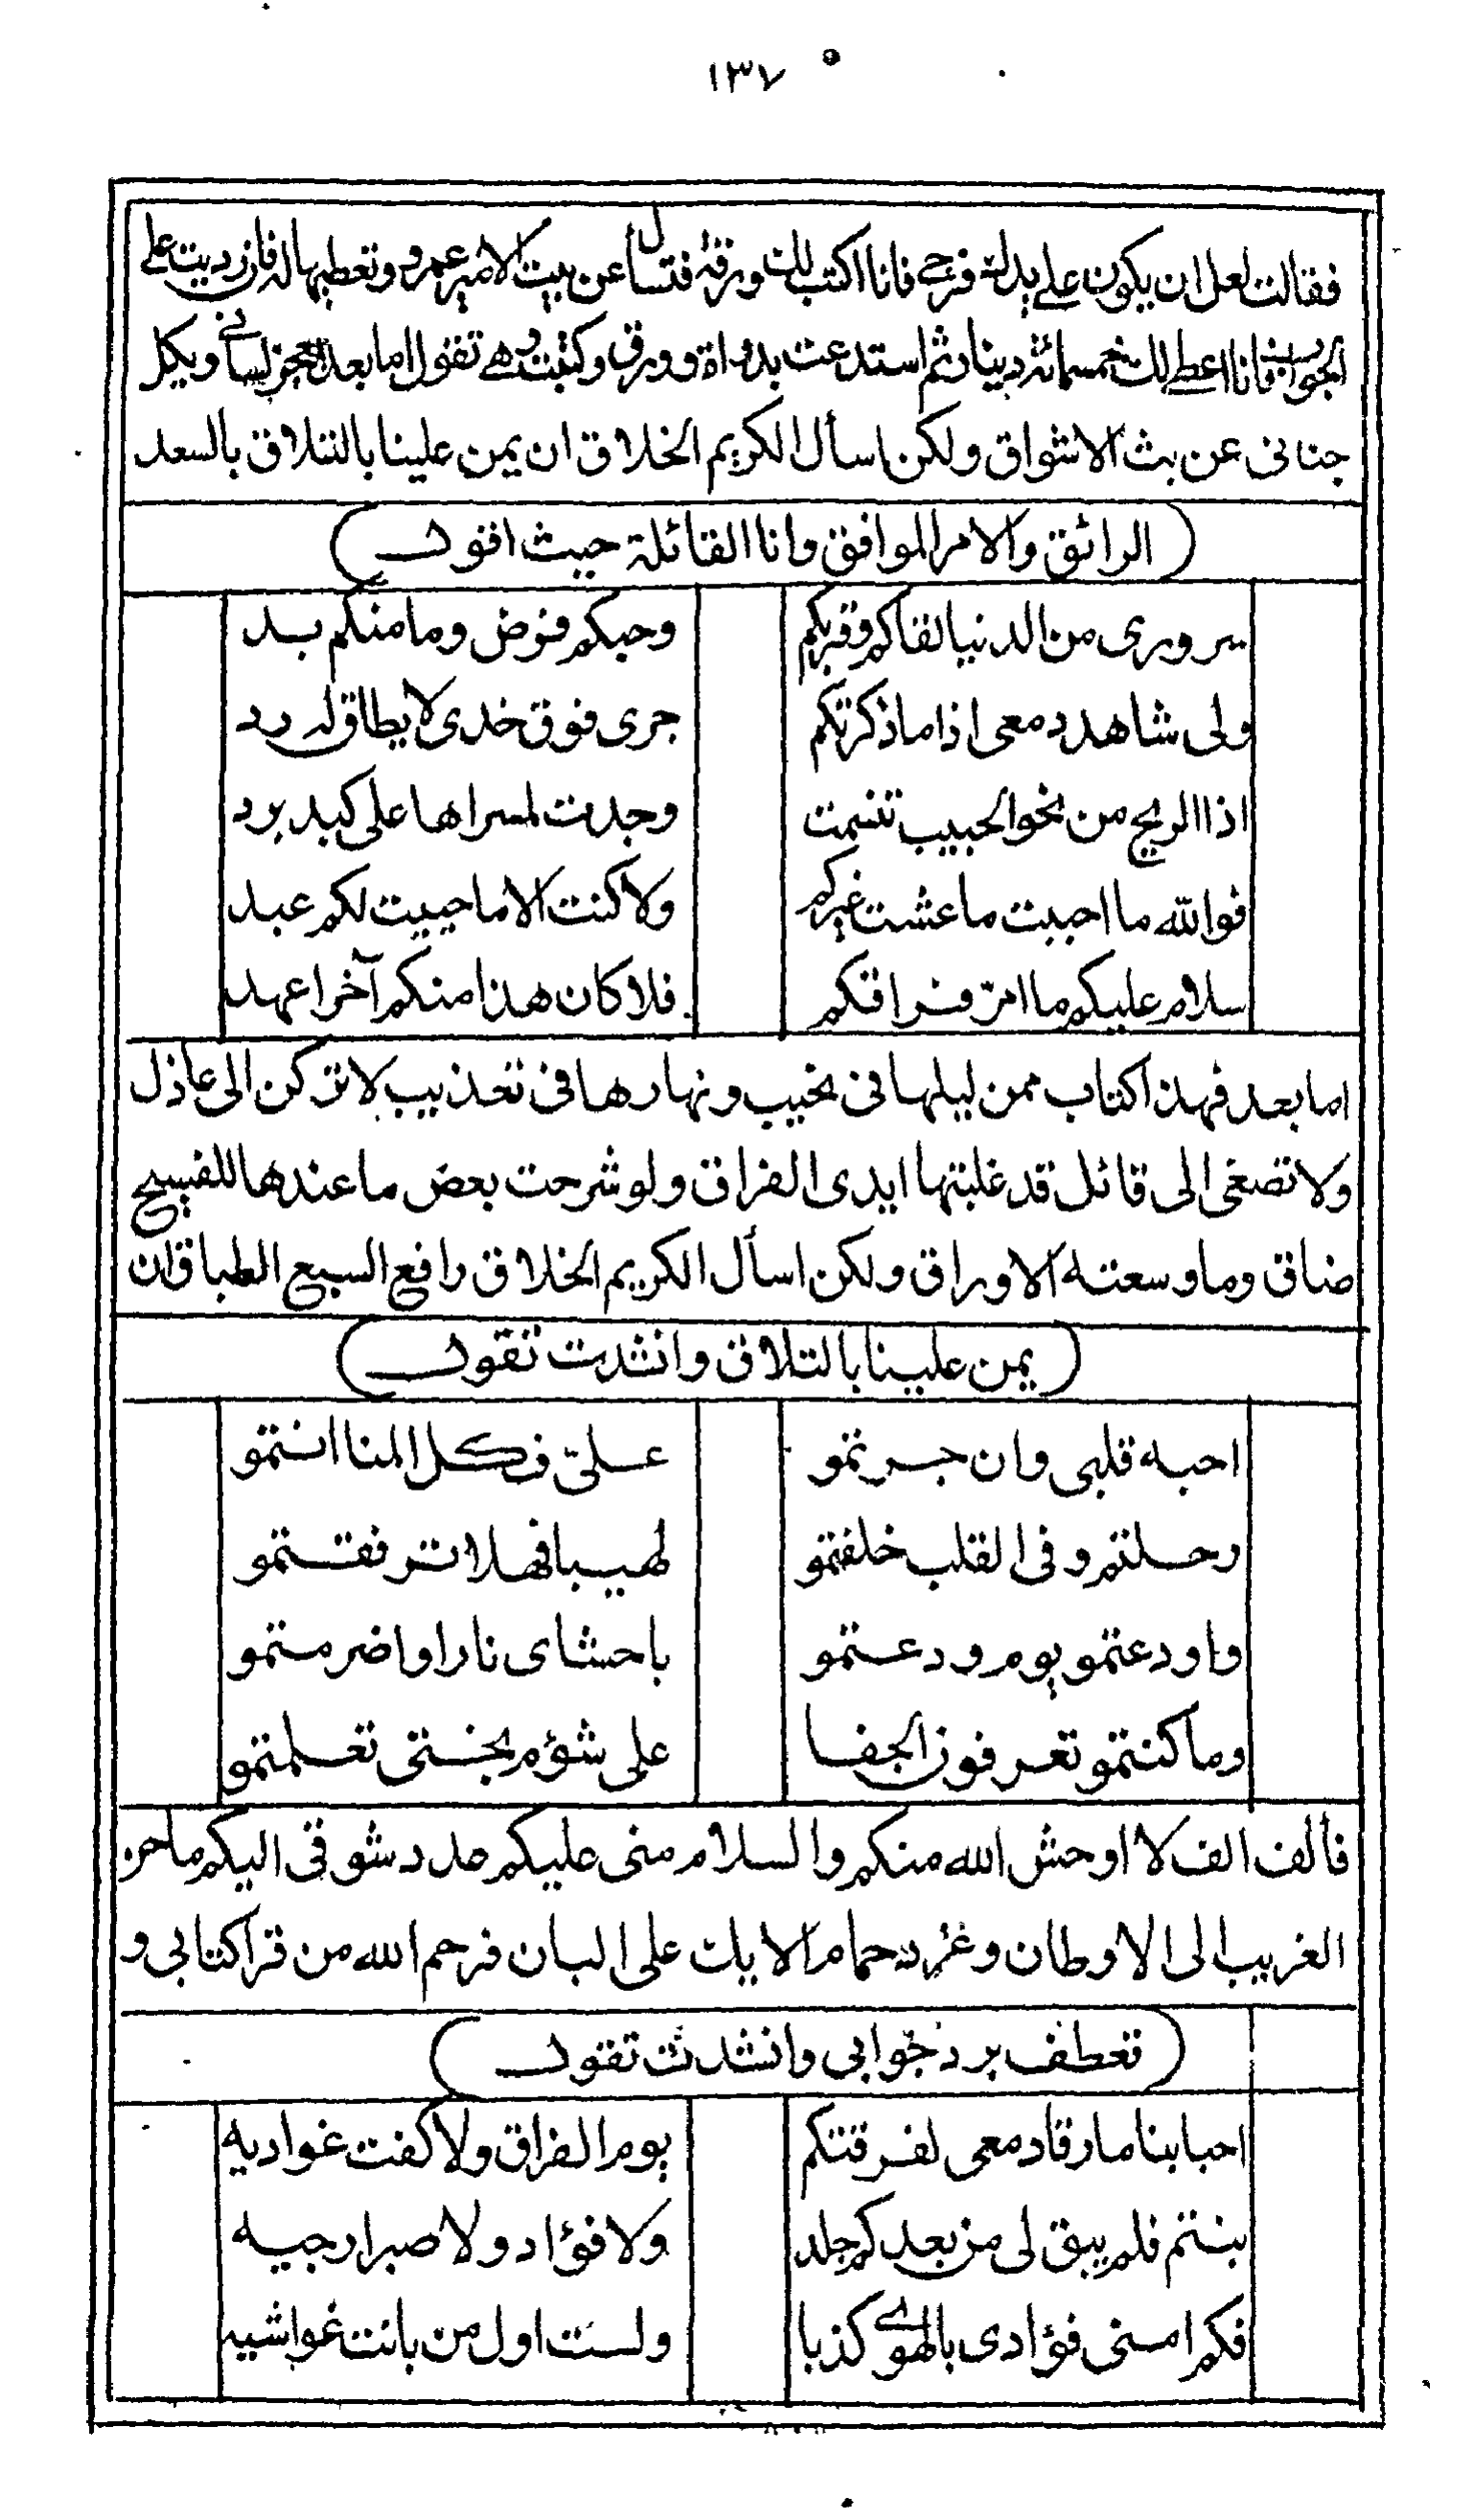 ١٣٧
فقالت لعل ان يكون على يدك فرجى فانا اكتب لك ورقة فتسأل عن بيت الامير عمرو وتعطيها له فان رديت على
الجواب فانا اعطى لك خمسمائة دينار ثم استدعت بدواة وورق وكتبت وهى تقول اما بعد لساني ويكل
جنانى عن بث الاشواق ولكن اسأل الكريم الخلاق ان يمن علينا بالتلاق بالسعد
(الرائق والامر الموافق وانا القائلة حيث اقول)
سرورى من الدنيا لقاكم وقربكم وحبكم فرض وما منكم بد
ولى شاهد دمعى اذا ما ذكرتكم جرى فوق خدى لا يطاق له رد
اذا الريح من نحو الحبيب تنسمت وجدت لمسراها على كبد برد
فوالله ما احببت ما عشت غيركم ولا كنت الا ما حييت لكم عبد
سلام عليكم ما امر فراقكم فلا كان هذا منكم آخرا عهد
اما بعد فهذا كتاب ممن ليلها فى نحيب ونهارها فى تعذيب لا تركن الى عاذل
ولا تصغى الى قائل قد غلبتها ايدى الفراق ولو شرحت بعض ما عندها للفسيح
ضاق وما وسعته الاوراق ولكن اسأل الكريم الخلاق رافع السبع الطباق ان
(يمن علينا بالتلاق وانشدت تقول)
احبه قلبى وان جرتمو علىّ فكل المنا انتمو
رحلتم وفى القلب خلفتمو لهيبا فهلا ترفقتمو
واودعتمو يوم ودعتمو باحشاى نارا واضرمتمو
وما كنتمو تعرفون الجفا على شؤم بختى تعلمتمو
فألف الف لا اوحش الله منكم والسلام منى عليكم عدد شوقى اليكم ما حن
الغريب الى الاوطان وغرد حمام الايك على البان فرحم الله من قرا كتابى و
(تعطف برد جوابى وانشدت تقول)
احبابنا ما رقا دمعى لفرقتكم يوم الفراق ولا كفت غواديه
بنتم فلم يبق لى من بعدكم جلد ولا فؤاد ولا صبر ارجيه
فكم امنى فؤادى بالهوى كذبا ولست اول من بانت غواشيه